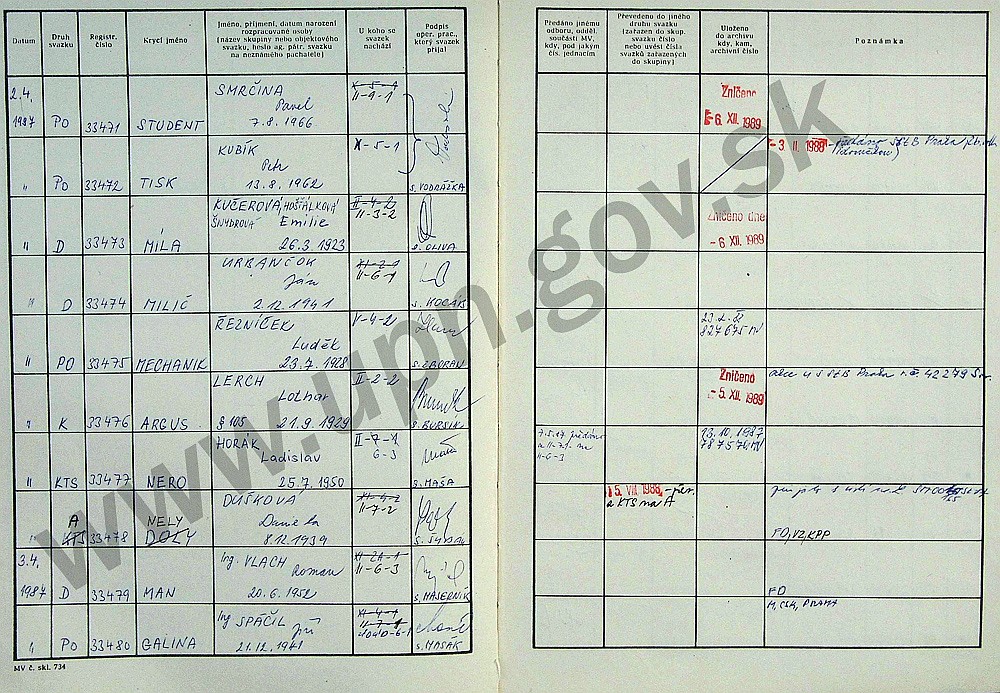 Datum
Druh svazku
Registr. číslo
Krycí jméno
Jméno, příjmení, datum narození
rozpracované osoby
(název skupiny nebo objektového
svazku, heslo ag. pátr. svazku
na neznámého pachatele)
U koho se
svazek
nachází
Podpis
oper. prac.,
který svazek
přijal
Předáno jinému
odboru, odděl.
součásti MV,
kdy, pod jakým
čís. jednacím
Převedeno do jiného
druhu svazku
(zařazen do skup.
svazku číslo
nebo uvést čísla
svazků zařazených
do skupiny)
Uloženo
do archivu
kdy, kam,
archivní číslo
Poznámka
2.4.
1987 PO 33471 STUDENT
SMRČINA
Pavel
7.8.1966
X-5-1
II-9-1
Zničeno
-6. XII. 1989
" PO 33472 TISK
KUBÍK
Petr
13.8.1962
X-5-1
s. VODRÁŽKA
-3 II. 1988 - předáno SStB Praha
" D 33473 MÍLA
KUČEROVÁ, HOŠŤÁLKOVÁ
ŠNYDROVÁ Emilie
26.3.1923
II-4-2
II-3-2
s. OLIVA
Zničeno dne
-6 XII. 1989
" D 33474 MILIČ
URBANČOK
Ján
2.12.1941
XI-2-1
II-6-1
s. KOCÁB
" PO 33475 MECHANIK
ŘEZNÍČEK
Luděk
23.7.1928
V-4-2
s. ZBOŘAN
827675 MV
" K 33476 ARGUS
LERCH
Lothar
§ 105 21.9.1929
II-2-2
s. BURSÍK
Zničeno
-5. XII. 1989
akce u S StB Praha 42279
" KTS 33477 NERO
HORÁK
Ladislav
25.7.1950
II-7-1
6-3
s. MAŠA
7.5.87 předáno
z II-7-1 na
II-6-3
13.10.1987
787576 MV
A NELY
" KTS 33478 DOLY
DUŠKOVÁ
Daniela
8.12.1939
XI-4-2
II-7-2
15. VII. 1988 - přev.
z KTS na A
FO, VZ, KPP
3.4.
1987 D 33479 MAN
Ing. VLACH
Roman
20.6.1952
XI-2A-1
II-6-3
s. MASERNÍK
FO
" PO 33480 GALINA
Ing SPÁČIL
Jiří
21.12.1941
XI-4-1
II-7-1
4040-6-1
s. MAŠÁK
M, CSK, PRAHA
MV č. skl. 734
www.upn.gov.sk